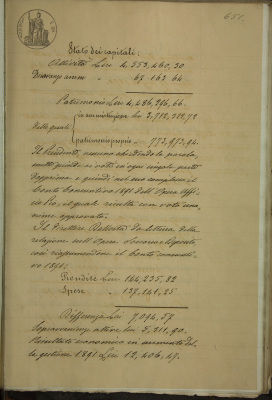 651.
Stato dei capitali:
Attività Lire 4,353,460,30
Disavanzo annuo „ 67 163 64
Patrimonio Lire 4,486,296,66
Delle quali
da amministrazione Lire 3,712,322,72
patrimonio proprio „ 773,973,94
Il Presidente, nessuno chiedendo la parola
mette quindi ai voti ad ogni singola parte
dapprima e quindi nel suo complesso il
Conto Consuntivo 1891 dell'Opera Uffi-
cio Pio, il quale risulta con voto una-
nime approvato.
Il Direttore dà lettura della
relazione sull'Opera Soccorso
così riassumendone il Conto consunti-
vo 1891:
Rendite Lire 144,235,82
Spese „ 137,141,25
Differenza Lire 7,094,57
Sopravvenienze attive Lire 5,311,90
Risultato economico in aumento del-
la gestione 1891 Lire 12,406,47